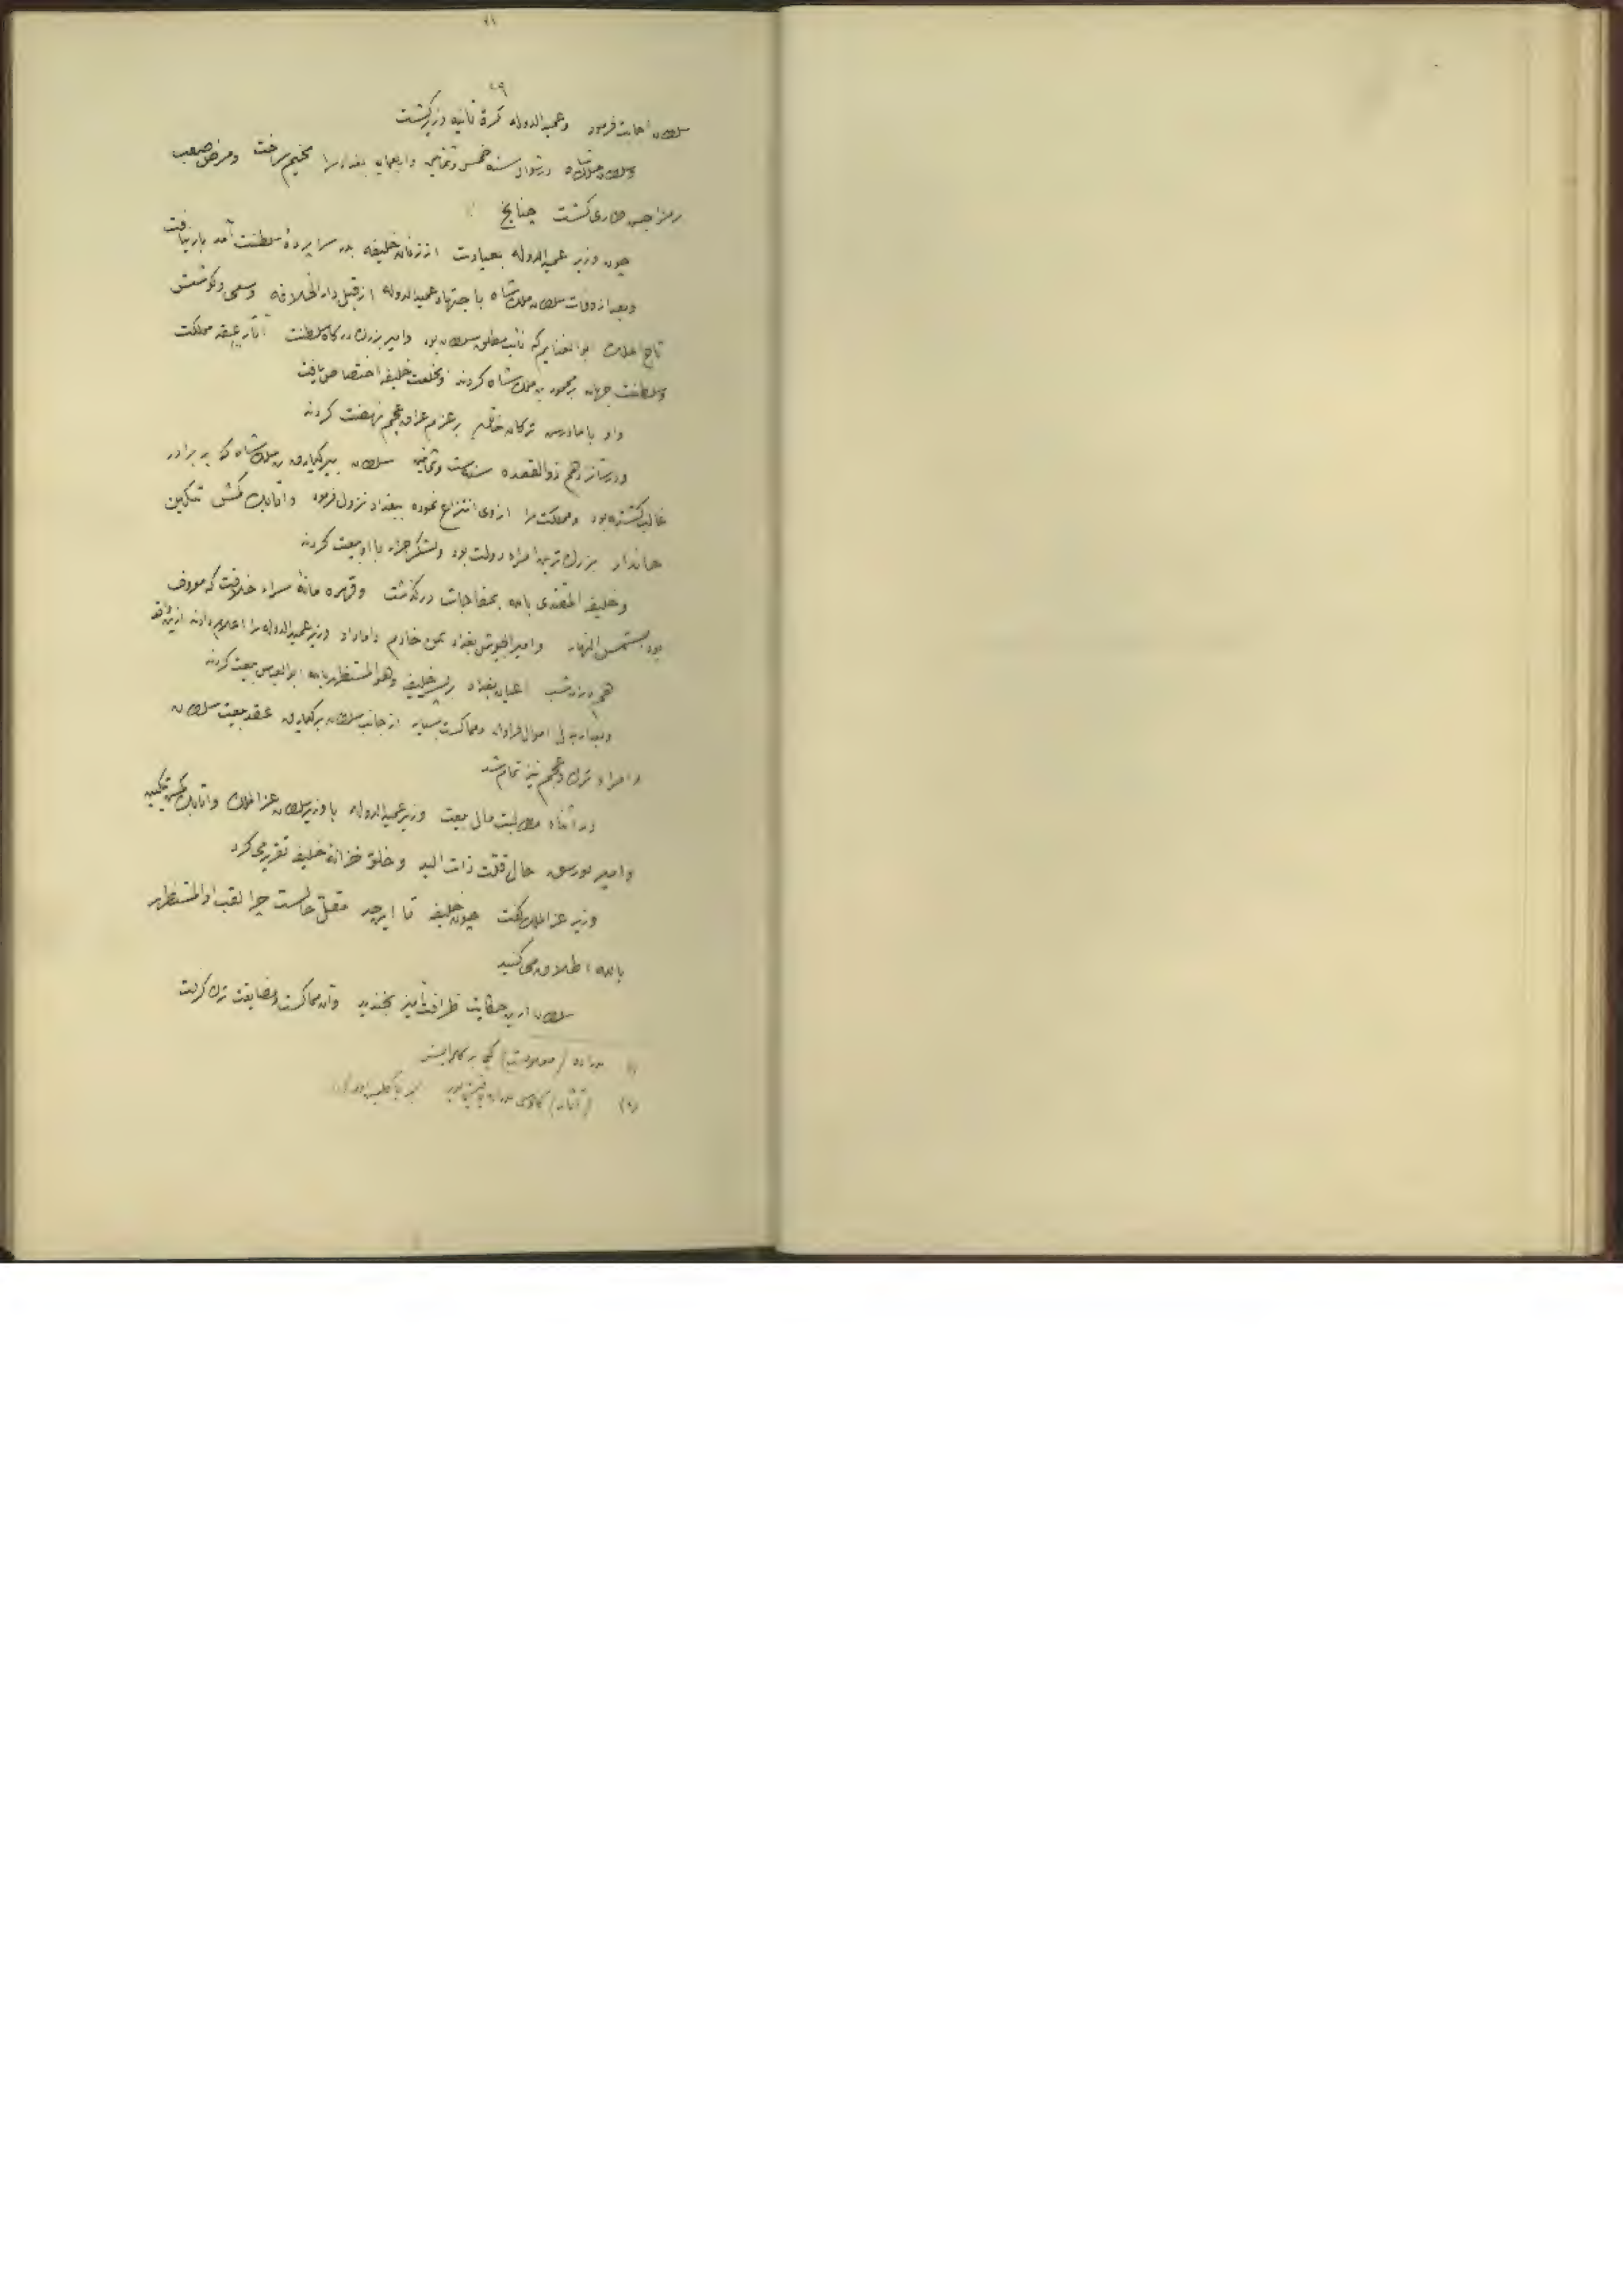 سلطان اجابت فرمود وعمیدالدوله کرة ثانیه وزیر گشت
وسلطان ملکشاه در شوال سنه خمس وثمانین واربعمایه بغداد را مخیم ساخت ومرض صعب
بر مزاجش طاری گشت چنانچ
چون وزیر عمیدالدوله بعیادت از زفان خلیفه بدر سراپرده سلطنت آمد بار نیافت
وبعد از وفات سلطان ملکشاه باجتهاد عمیدالدوله از قبل دارالخلافه وسعی وکوشش
تاج الملک ابوالغنایم که نائب مطلق سلطان بود وامیر بزرگ درگاه سلطنت مملکت
وسلطنت جهان بر محمود بن ملکشاه کردند وبخلعت خلیفه اختصاص یافت
واو با مادرش ترکان خاتون بر عزم عراق عجم نهضت کردند
ودر شانزدهم ذوالقعده سنه ست وثمانین سلطان برکیارق بن ملکشاه که بر برادر
غالب گشته بود ومملکت را از وی انتزاع نموده ببغداد نزول فرمود واتابک کمش تتکین
جاندار بزرگ ترین امراء دولت بود ولشکر جرار با او بیعت کردند
وخلیفه المقتدی بالله بمفاجات درگذشت وقهرمانهٔ سراء خلافت که معروف
بود بشمس النهار وامیر الجیوش بغداد یمن خادم وزیر عمیدالدوله را اعلام دادند ازین واقعه
هم در آن شب اعیان بغداد بر پسر خلیفه وهو المستظهر بالله ابوالعباس بیعت کردند
وبعد از بذل اموال فراوان ومماکست بسیار از جانب سلطان برکیارق عقد بیعت سلطان
وامراء ترک وعجم نیز تمام شد
در اثناء مطالبت مال بیعت وزیر عمیدالدوله با وزیر سلطان عزالملک واتابک کمش تتکین
وامیر بورسق حال قلت ذات الید وخلو خزانهٔ خلیفه تقریر می کرد
وزیر عزالملک گفت چون خلیفه تا این حد مقل حالست چرا لقب او المستظهر
بالله اطلاق می کنید
سلطان ازین حکایت ظرافت آمیز بخندید وآن مماکست ومضایقت ترک گرفت